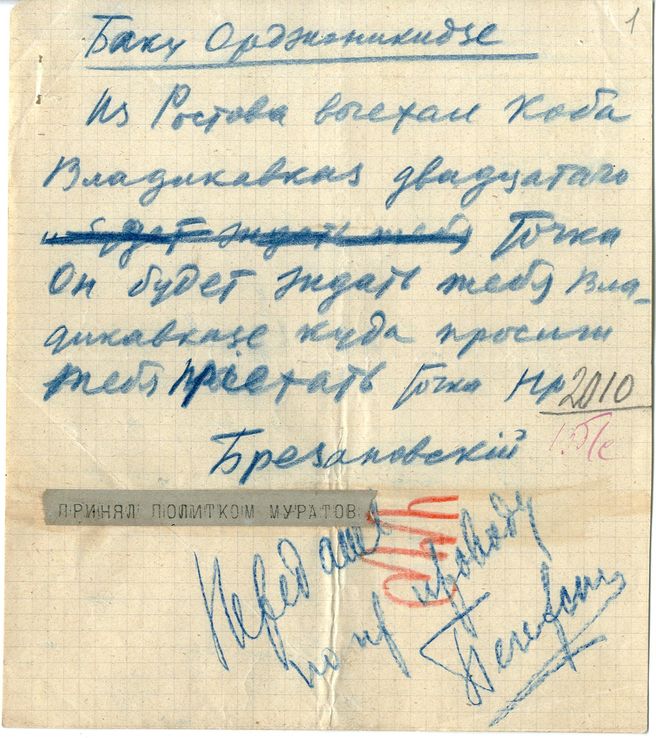 1
Баку Орджоникидзе
Из Ростова выехал Коба
Владикавказ двадцатаго
и будет ждать тебя Точка
Он будет ждать тебя Вла-
дикавказе куда просит
тебя приехать Точка Нр 2010
Брезановскій
ПРИНЯЛ ПОЛИТКОМ МУРАТОВ
Передано
по пр проводу